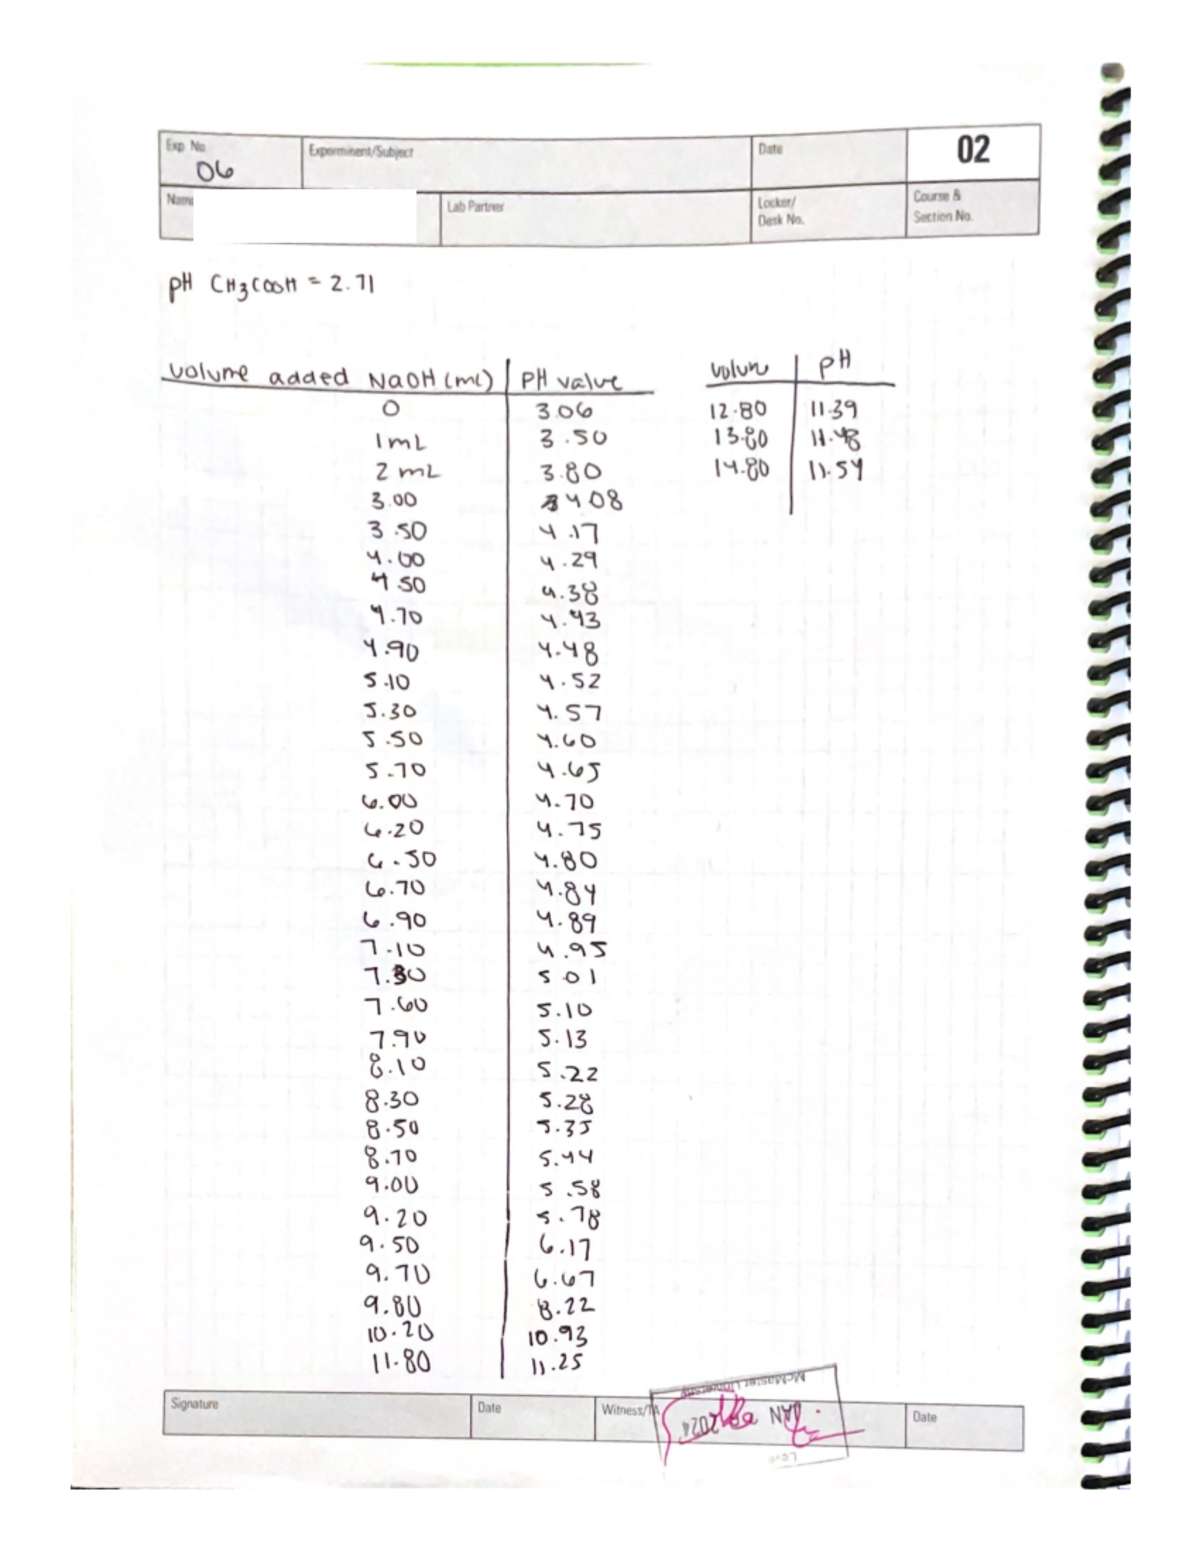 Exp. No. Experiment/Subject Date 02
06
Name Lab Partner Locker/ Desk No. Course & Section No.
pH CH3COOH = 2.71
volume added NaOH (mL) | pH value
0 3.06
1 mL 3.50
2 mL 3.80
3.00 4.08
3.50 4.17
4.00 4.29
4.50 4.38
4.70 4.43
4.90 4.48
5.10 4.52
5.30 4.57
5.50 4.60
5.70 4.65
6.00 4.70
6.20 4.75
6.50 4.80
6.70 4.84
6.90 4.89
7.10 4.95
7.30 5.01
7.60 5.10
7.90 5.13
8.10 5.22
8.30 5.28
8.50 5.35
8.70 5.44
9.00 5.58
9.20 5.78
9.50 6.17
9.70 6.67
9.80 8.22
10.20 10.93
11.80 11.25
volume | pH
12.80 11.39
13.80 11.48
14.80 11.54
Signature Date Witness/TA Date
McMaster University
JAN 2024